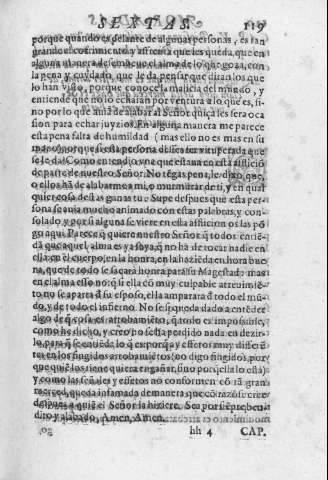 SEXTAS 119
porque quando es delante de algunas personas, es tan
grande el corrimiento y affrenta que les queda, que en
alguna manera desembeue el alma de lo que gozò, con
la pena y cuydado que le da pensar que diran los que
lo han visto, porque conoce la malicia del mundo, y
entiende que no lo echaran por ventura a lo que es, si-
no por lo que auiã de alabar al Señor quiçà les sera oca
sion para echar juyzios. En alguna manera me parece
esta pena falta de humildad (mas ello no es mas en su
mano) porque si esta persona dessea ser vituperada que
se le da? Como entendio vna que estaua en esta aflició
de parte de nuestro Señor. No tẽgas pena, le dixo, que
o ellos hã de alabarme a mi, o murmurar de ti, y en qual
quier cosa destas ganas tu. Supe despues que esta per-
sona se auia mucho animado con estas palabras, y con-
solado, y por si alguna se viere en esta aflicion os las põ
go aqui. Parece q̃ quiere nuestro Señor, q̃ todos entiẽ-
dã que aquel alma es ya suya, q̃ no ha de tocar nadie en
ella en el cuerpo, en la honra, en la haziẽda en hora bue
na, que de todo se sacarà honra para su Magestad: mas
en el alma esso no: q̃ si ella cõ muy culpable atreuimiẽ-
to no se aparta d̃ su esposo, ella amparara d̃ todo el mũ-
do, y de todo el infierno. No se si queda dado a entẽder
algo de q̃ cosa es arrobamiẽto, q̃ todo es impossible,
como he dicho, y creo no se ha perdido nada en dezir-
lo, para q̃ se entiẽda lo q̃ es, porq̃ ay effetos muy differẽ-
tes en los fingidos arrobamiẽtos (no digo fingidos, por
que quiẽ los tiene quiera engañar, sino porq̃ ella lo està)
y como las señales y effetos no conformen cõ tã gran
merced, queda infamada de manera que cõ razõ se cree
despues a quiẽ el Señor la hiziere. Sea por siẽpre ben-
dito y alabado, Amen, Amen.
hh 4 CAP.